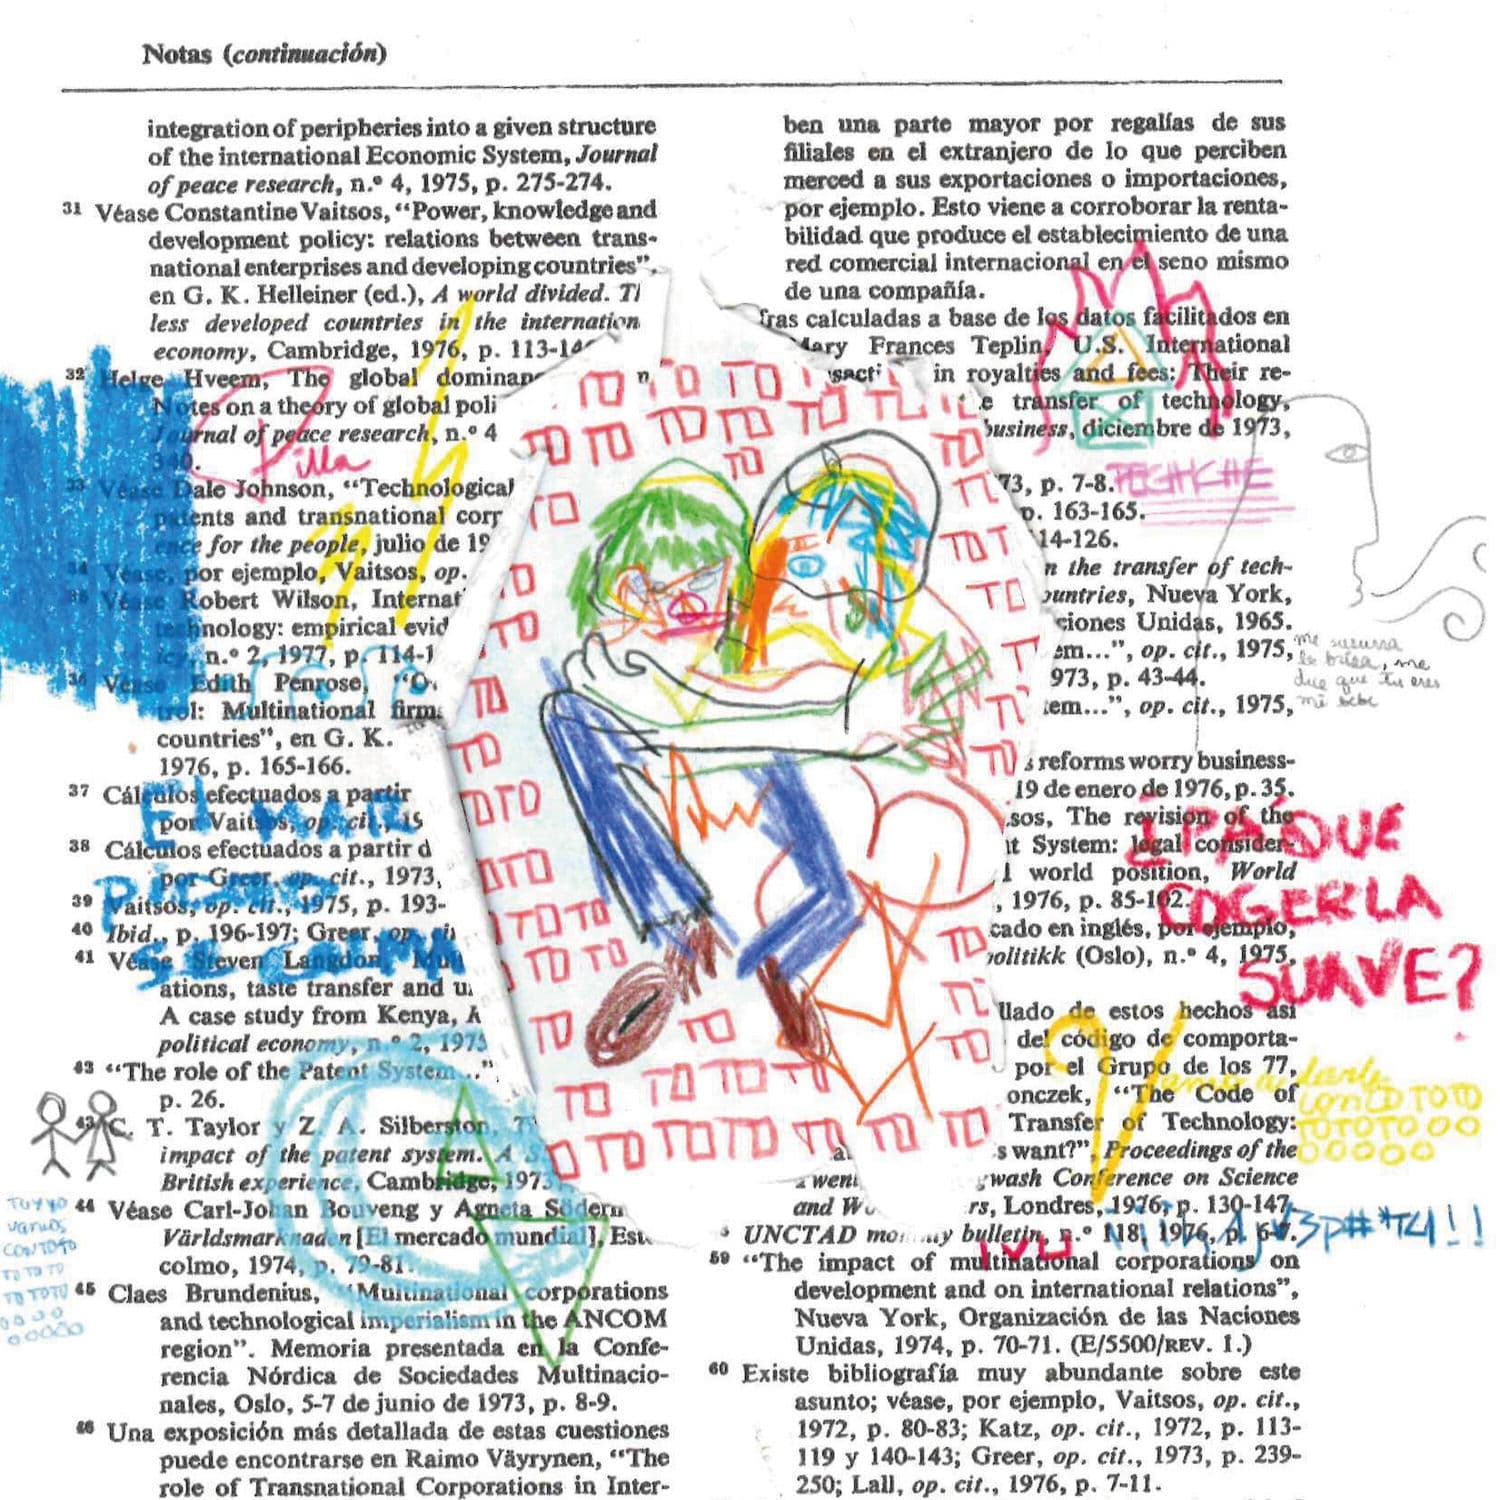 Notas (continuación)
integration of peripheries into a given structure
of the international Economic System, Journal
of peace research, n.º 4, 1975, p. 275-274.
31 Véase Constantine Vaitsos, “Power, knowledge and
development policy: relations between trans-
national enterprises and developing countries”,
en G. K. Helleiner (ed.), A world divided.
less developed countries in the internation
economy, Cambridge, 1976, p. 113-14
32 Helge Hveem, The global dominan
Notes on a theory of global poli
Journal of peace research, n.º 4
340.
33 Véase Dale Johnson, “Technological
patents and transnational corp
ence for the people, julio de 19
34 Véase, por ejemplo, Vaitsos, op.
35 Véase Robert Wilson, Internat
technology: empirical evid
icy, n.º 2, 1977, p. 114-1
36 Véase Edith Penrose, “O
trol: Multinational firm
countries”, en G. K.
1976, p. 165-166.
37 Cálculos efectuados a partir
por Vaitsos, op. cit., 19
38 Cálculos efectuados a partir d
por Greer, op. cit., 1973,
39 Vaitsos, op. cit., 1975, p. 193-
40 Ibid., p. 196-197; Greer, op. ci
41 Véase Steven Langdon, Mul
ations, taste transfer and u
A case study from Kenya,
political economy, n.º 2, 1975
43 “The role of the Patent System...”,
p. 26.
43 C. T. Taylor y Z. A. Silberston,
impact of the patent system. A
British experience, Cambridge, 1973
44 Véase Carl-Johan Bouveng y Agneta Södern
Världsmarknaden [El mercado mundial], Est
colmo, 1974, p. 79-81.
45 Claes Brundenius, “Multinational corporations
and technological imperialism in the ANCOM
region”. Memoria presentada en la Confe-
rencia Nórdica de Sociedades Multinacio-
nales, Oslo, 5-7 de junio de 1973, p. 8-9.
46 Una exposición más detallada de estas cuestiones
puede encontrarse en Raimo Väyrynen, “The
role of Transnational Corporations in Inter-
ben una parte mayor por regalías de sus
filiales en el extranjero de lo que perciben
merced a sus exportaciones o importaciones,
por ejemplo. Esto viene a corroborar la renta-
bilidad que produce el establecimiento de una
red comercial internacional en el seno mismo
de una compañía.
fras calculadas a base de los datos facilitados en
Mary Frances Teplin, U.S. International
sacti in royalties and fees: Their re-
e transfer of technology,
business, diciembre de 1973,
73, p. 7-8.
p. 163-165.
14-126.
n the transfer of tech-
ountries, Nueva York,
ciones Unidas, 1965.
em...”, op. cit., 1975,
973, p. 43-44.
em...”, op. cit., 1975,
s reforms worry business-
19 de enero de 1976, p. 35.
sos, The revision of the
t System: legal consider-
l world position, World
, 1976, p. 85-102.
cado en inglés, por ejemplo,
politikk (Oslo), n.º 4, 1975,
llado de estos hechos así
del código de comporta-
por el Grupo de los 77,
onczek, “The Code of
Transfer of Technology:
s want?”, Proceedings of the
wash Conference on Science
and rs, Londres, 1976, p. 130-147.
UNCTAD bulletin, n.º 118, 1976, p. 6-7.
59 “The impact of multinational corporations on
development and on international relations”,
Nueva York, Organización de las Naciones
Unidas, 1974, p. 70-71. (E/5500/REV. 1.)
60 Existe bibliografía muy abundante sobre este
asunto; véase, por ejemplo, Vaitsos, op. cit.,
1972, p. 80-83; Katz, op. cit., 1972, p. 113-
119 y 140-143; Greer, op. cit., 1973, p. 239-
250; Lall, op. cit., 1976, p. 7-11.
Rilla
El MAR
SE CALMA
me susurra
la brisa, me
dice que tu eres
mi bebe
¿PA QUE
COGERLA
SUAVE?
con TO TOTO
TOTOTO OO
OOOOO
vamos
CON TOTO
TO TO TO
TO TOTO